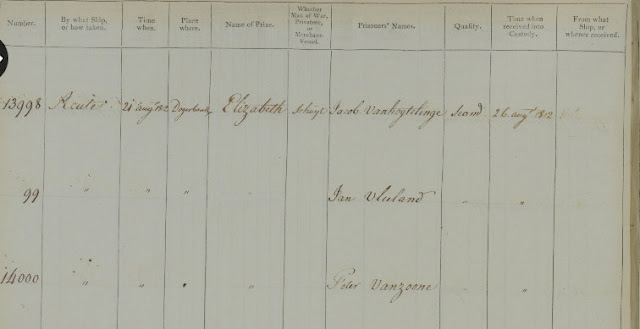 Number. By what Ship, or how taken. Time when. Place where. Name of Prize. Whether Man of War, Privateer, or Merchant Vessel. Prisoners' Names. Quality. Time when received into Custody. From what Ship, or whence received.
13998 Acute 21 Augt 1812 Doggerbank Elizabeth Schuyt Jacob Vanhogtelinge Seam 26 Augt 1812
99 " " " " Jan Vluland " "
14000 " " " " Peter Vanzoone " "